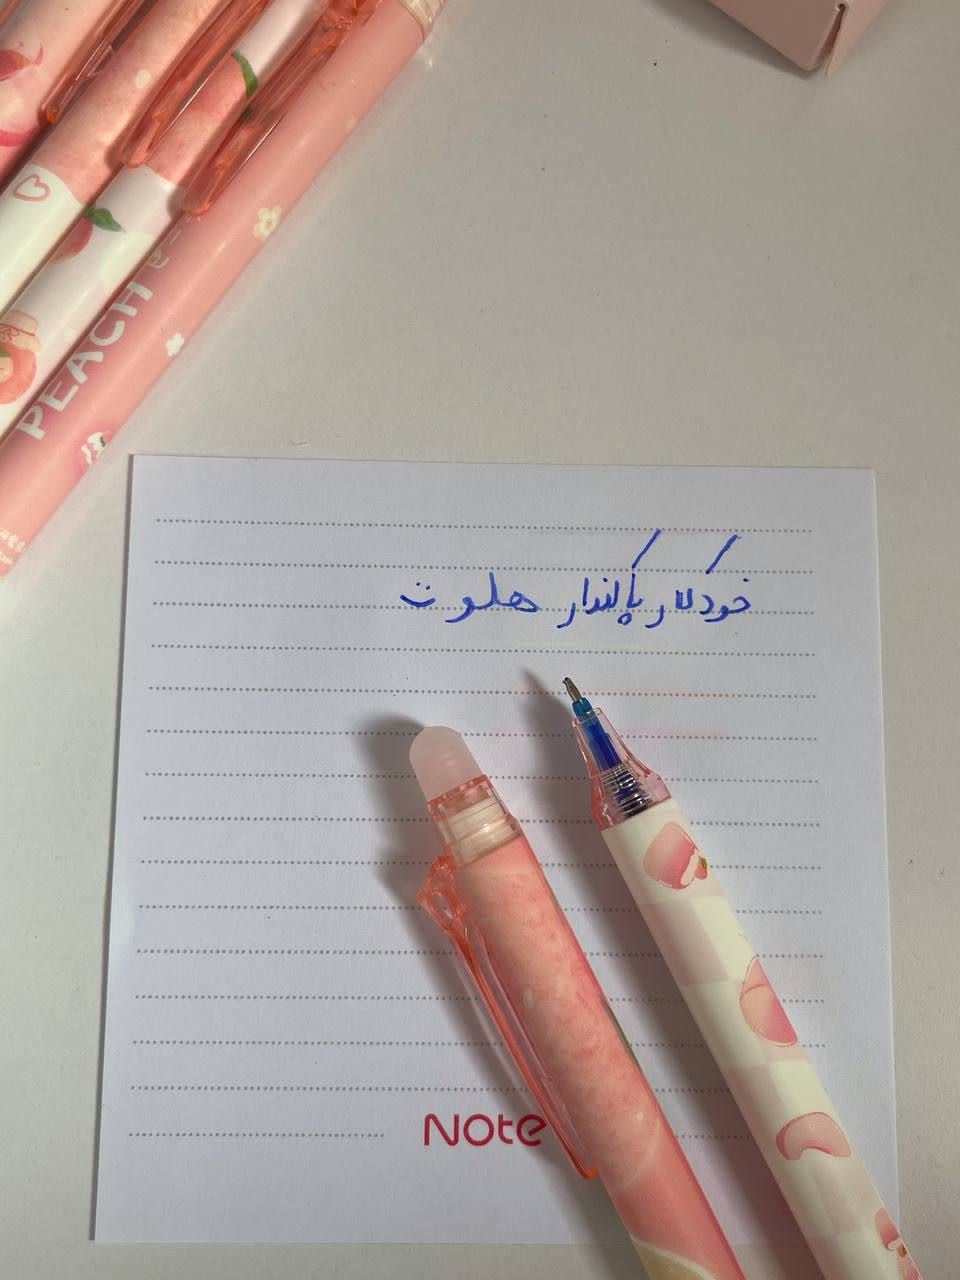 PEACH
خودکار پاکندار هلوت
Note